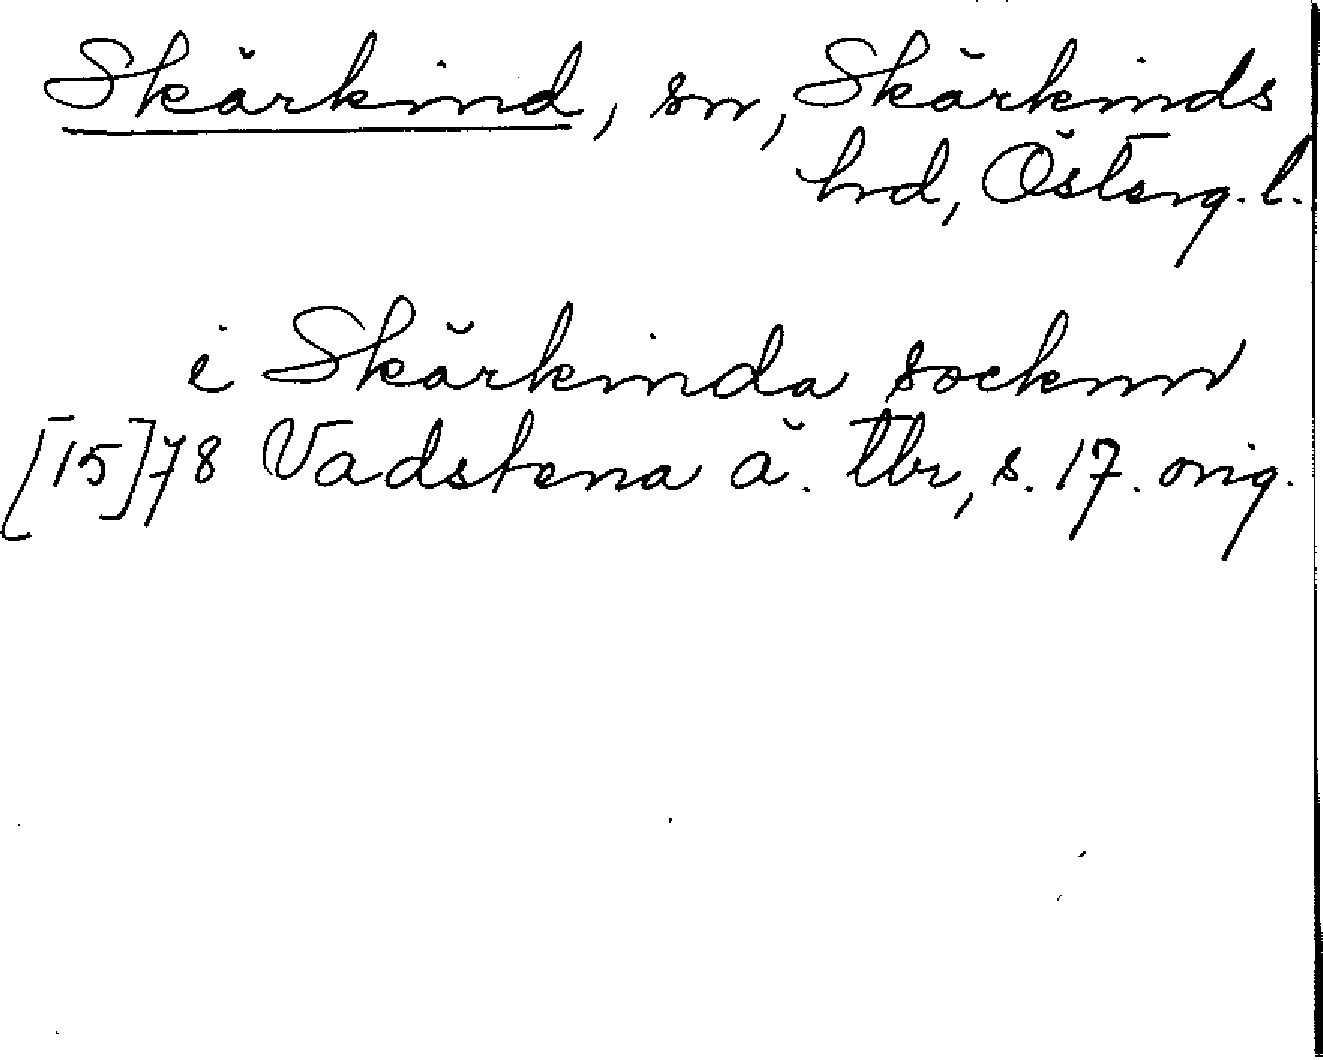 Skärkind, sn, Skärkinds
hd, Österg. l.
i Skärkinda socknn
[15]78 Vadstena ä. tbr, s. 17. orig.